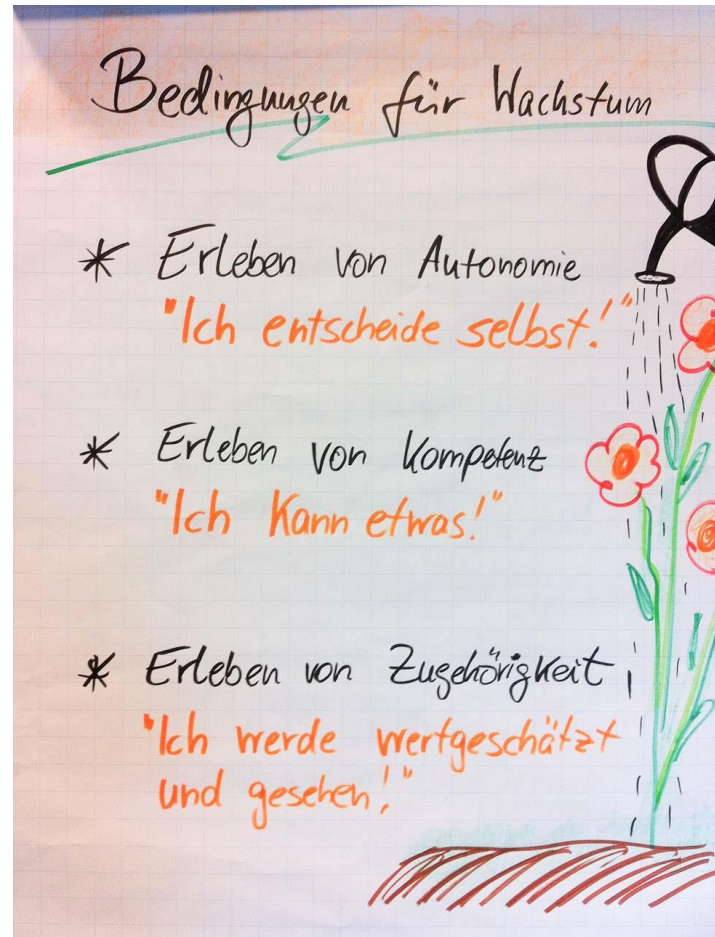 Bedingungen für Wachstum
* Erleben von Autonomie
"Ich entscheide selbst!"
* Erleben von Kompetenz
"Ich kann etwas!"
* Erleben von Zugehörigkeit
"Ich werde wertgeschätzt
und gesehen!"